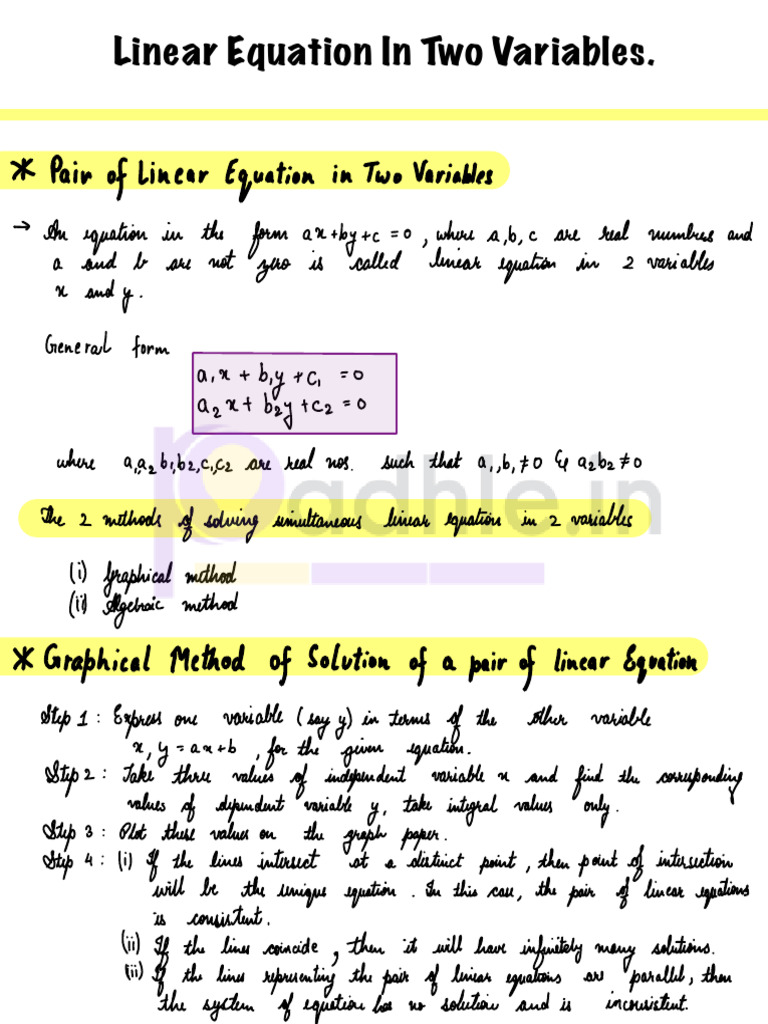 Linear Equation In Two Variables.
* Pair of Linear Equation in Two Variables
→ An equation in the form ax+by+c =0, where a,b,c are real numbers and
a and b are not zero is called linear equation in 2 variables
x and y.
General form
a₁x + b₁y + c₁ = 0
a₂x + b₂y + c₂ = 0
where a₁,a₂ b₁,b₂,c₁,c₂ are real nos. such that a₁,b₁≠0 & a₂b₂≠0
padhle.in
The 2 methods of solving simultaneous linear equation in 2 variables
(i) Graphical method
(ii) Algebraic method
* Graphical Method of Solution of a pair of linear Equation
Step 1 : Express one variable (say y) in terms of the other variable
x, y = ax+b, for the given equation.
Step 2 : Take three values of independent variable x and find the corresponding
values of dependent variable y, take integral values only.
Step 3 : Plot these values on the graph paper.
Step 4 : (i) If the lines intersect at a distinct point, then point of intersection
will be the unique equation. In this case, the pair of linear equations
is consistent.
(ii) If the lines coincide, then it will have infinitely many solutions.
(ii) If the lines representing the pair of linear equations are parallel, then
the system of equation has no solution and is inconsistent.